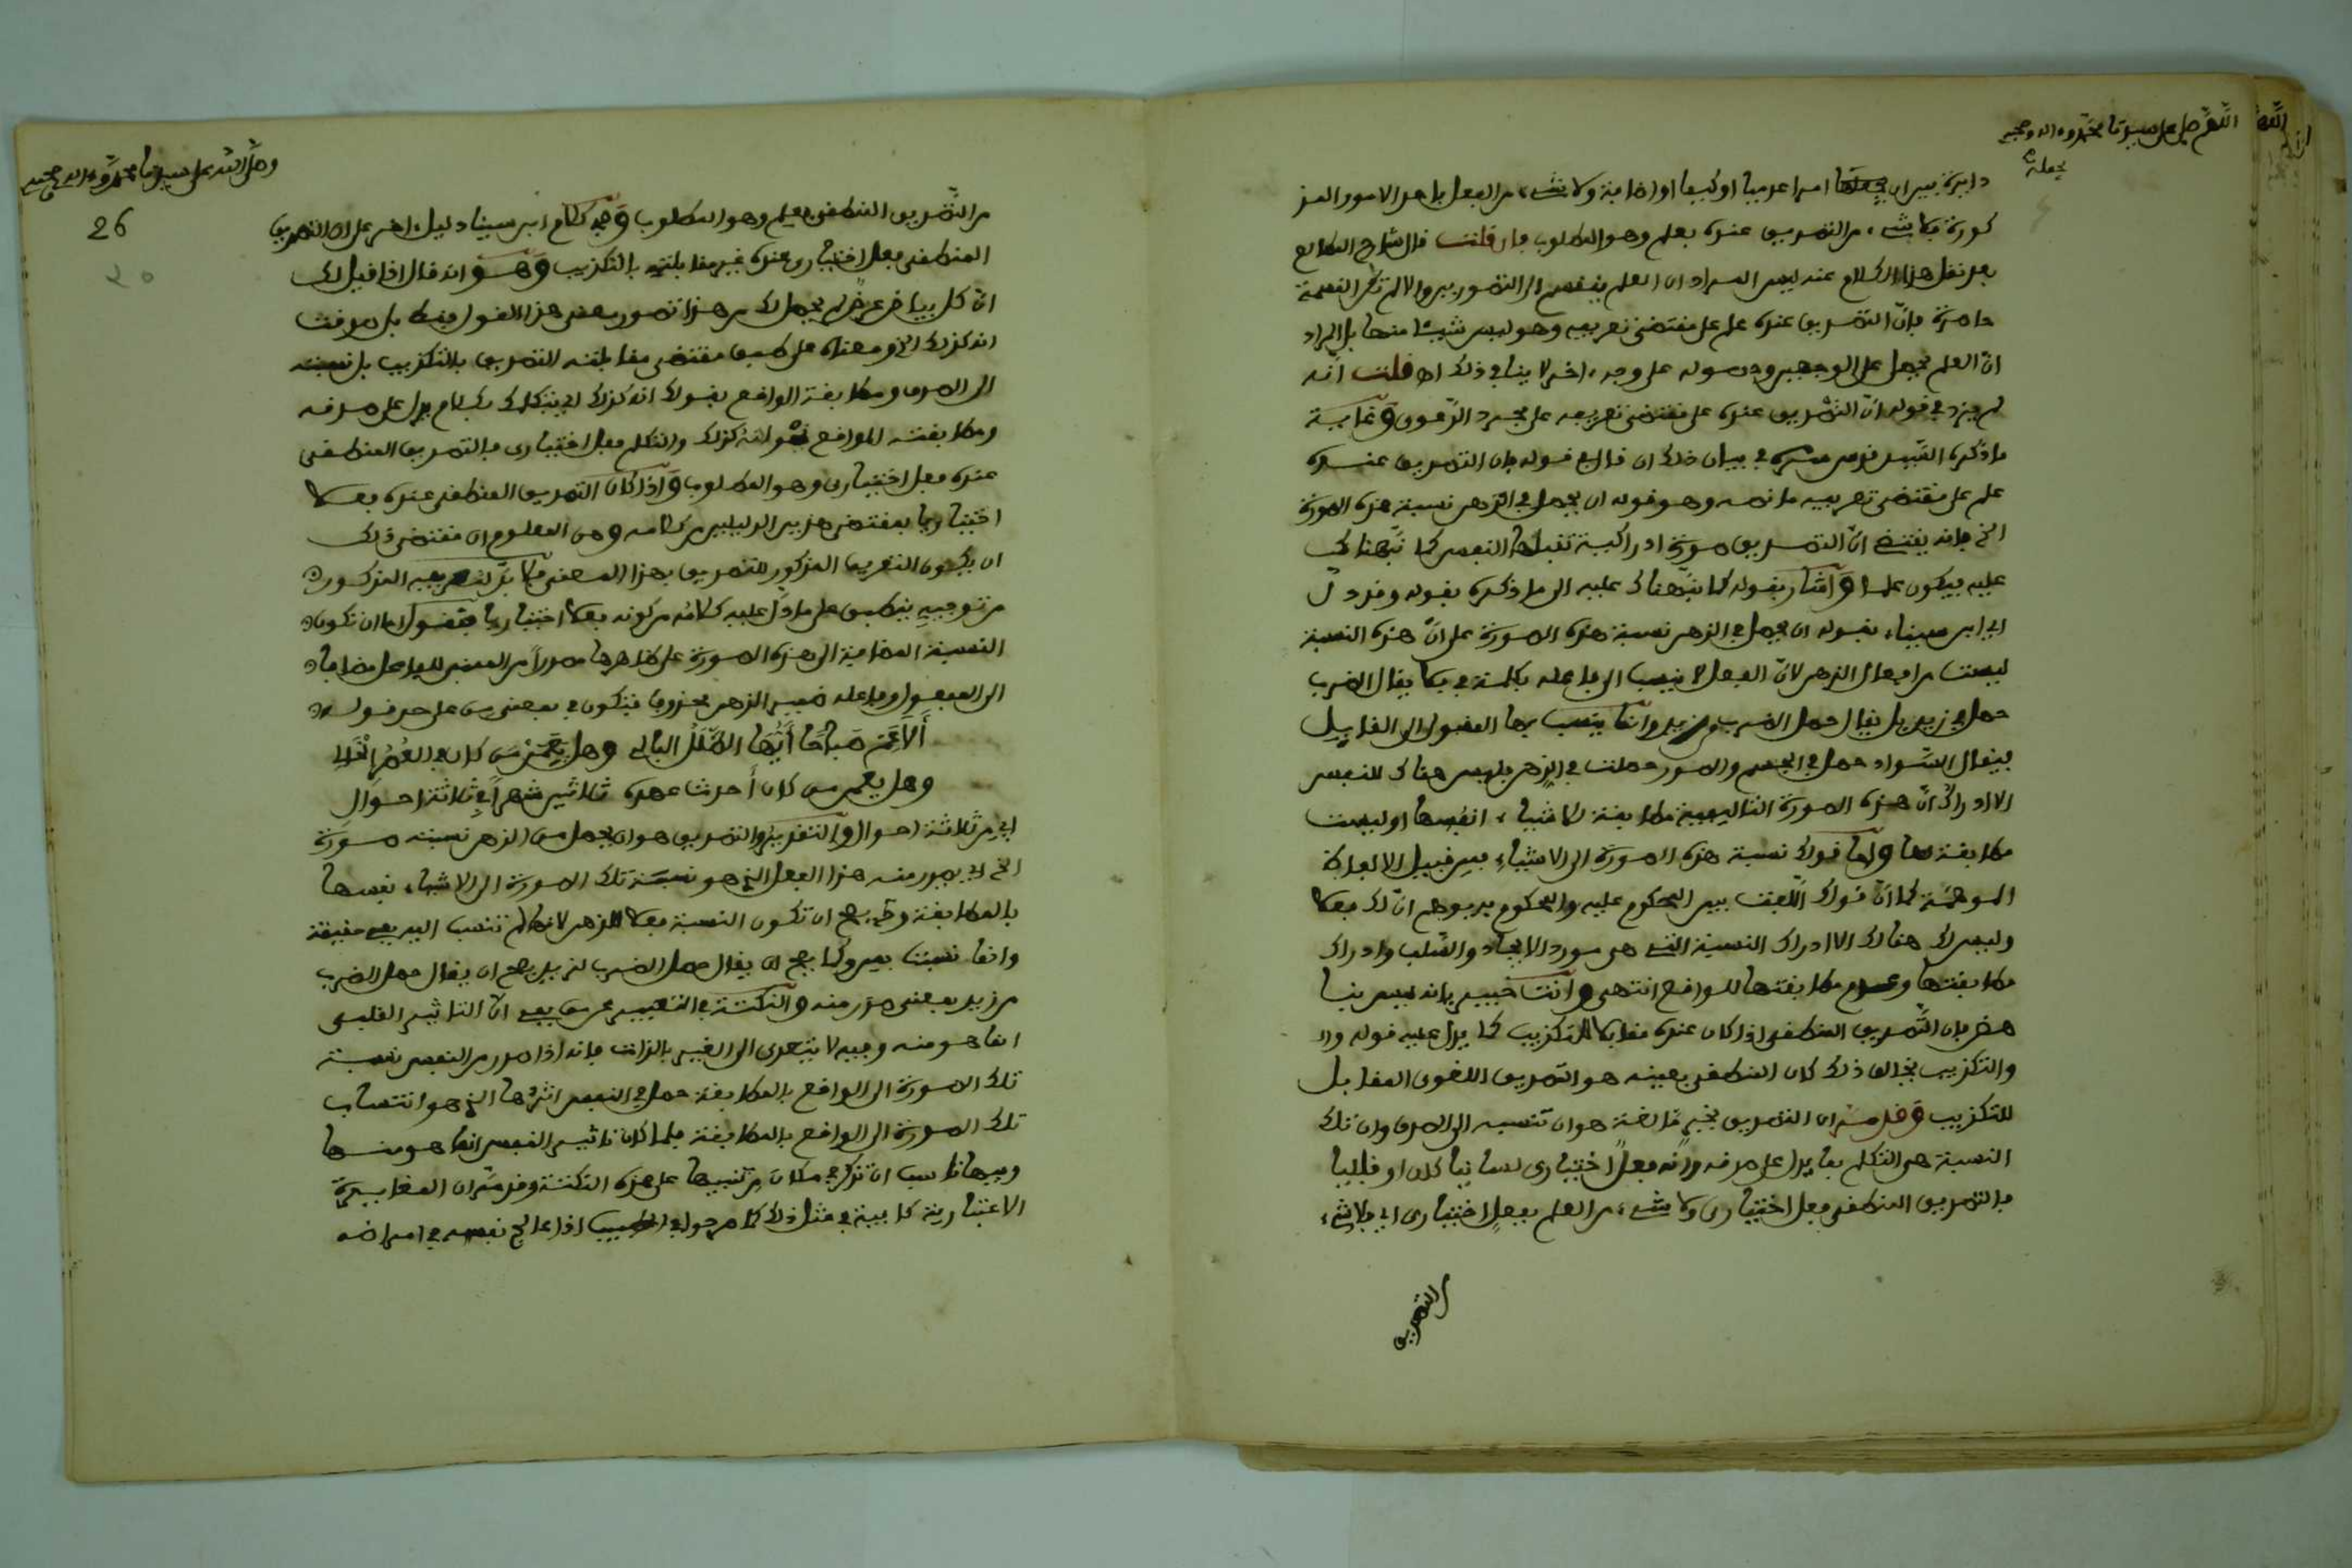 اللهم صل على سيدنا محمد وءاله وصحبه
يجعله
دايرة بين ان يجعلها امرا عدميا او كيفا او اضافة ولا شيء من الفعل باحد الامور المذ
كورة فلا شيء من التصديق عنده بعلم وهو المطلوب فان قلت قال شارح المطالع
بعد نقل هذا الكلام عنه ليس المراد ان العلم ينقسم الى التصورين والا لم تكن القسمة
حاصرة فان التصديق عنده علم على مقتضى تعريفه وهو ليس شيئا منها بل المراد
ان العلم يحصل على الوجهين وحصوله على وجه ءاخر لا ينافي ذلك اهـ قلت انه
لم يزد في قوله ان التصديق عنده على مقتضى تعريفه على مجرد الدعوى وغاية
ما ذكره السيد قدس سره في بيان ذلك ان قال في قوله فان التصديق عنده
علم على مقتضى تعريفه ما نصه وهو قوله ان يحصل في الذهن نسبة هذه الصورة
الخ فانه يقتضي ان التصديق صورة ادراكية تقبلها النفس كما نبهناك
عليه فيكون علما واشار بقوله كما نبهناك عليه الى ما ذكره بقوله وقد دل
اي ابن سيناء بقوله ان يحصل في الذهن نسبة هذه الصورة على ان هذه النسبة
ليست من افعال الذهن لان الفعل لا ينسب الى فاعله بكلمة في فلا يقال الضرب
حصل في زيد بل يقال حصل الضرب من زيد وانما ينسب بها المقبول الى القابل
فيقال السواد حصل في الجسم والصور حصلت في الذهن فليس هناك للنفس
الا ادراك ان هذه الصورة التاليفية مطابقة للاشياء انفسها او ليست
مطابقة لها واما قولك نسبة هذه الصورة الى الاشياء فمن قبيل الالفاظ
الموهمة كما ان قولك القيت بين المحكوم عليه والمحكوم به يوهم ان لك فعلا
وليس لك هناك الا ادراك النسبة التي هي مورد الايجاب والسلب وادراك
مطابقتها وعدم مطابقتها للواقع انتهى وانت خبير بانه ليس بنا
هض فان التصديق المنطقي اذا كان عنده مقابلا للتكذيب كما يدل عليه قوله
والتكذيب يخالف ذلك كان المنطقي بعينه هو التصديق اللغوي المقابل
للتكذيب وقد مر ان التصديق بخبر ما لغة هو ان تنسبه الى الصدق وان تلك
النسبة هي التكلم بما يدل على صدقه وانه فعل اختياري لسانيا كان او قلبيا
فالتصديق المنطقي فعل اختياري ولا شيء من العلم بفعل اختياري اي فلا شيء
من التصديق
وصلى الله على سيدنا محمد وءاله وصحبه
26
٢٥
من التصديق المنطقي بعلم وهو المطلوب وفي كلام ابن سينا دليل ءاخر على ان التصديق
المنطقي فعل اختياري عنده غير مقابلته بالتكذيب وهو انه قال اذا قيل لك
ان كل بياض عرض لم يحصل لك من هذا تصور معنى هذا القول فقط بل صدقت
انه كذلك الخ ومعناه على طبق مقتضى مقابلته التصديق بالتكذيب بل نسبته
الى الصدق ومطابقة الواقع بقولك انه كذلك اي بتكلمك بكلام يدل على صدقه
ومطابقته للواقع نحو انه كذلك والتكلم فعل اختياري فالتصديق المنطقي
عنده فعل اختياري وهو المطلوب واذا كان التصديق المنطقي عنده فعلا
اختياريا بمقتضى هذين الدليلين من كلامه ومن المعلوم ان مقتضى ذلك
ان يكون التعريف المذكور للتصديق بهذا المعنى فلا بد لتعريفه المذكور
من توجيه ينطبق على ما دل عليه كلامه من كونه فعلا اختياريا فنقول اما ان تكون
النسبة المضافة الى هذه الصورة على ظاهرها مصدرا من المبني للفاعل مضافا
الى المفعول وفاعله ضمير الذهن محذوفا فتكون في بمعنى من على حد قوله
أَلاَ عِمْ صَبَاحًا أَيُّهَا الطَّلَلُ البَالِي وهل يَعِمَنْ مَن كان في العُصُرِ الخَالِي
وهل يعمن من كان أحدث عهده ثلاثين شهراً في ثلاثة احوال
اي من ثلاثة احوال والتقدير والتصديق هو ان يحصل من الذهن نسبة صورة
الخ اي يصدر منه هذا الفعل الذي هو نسبة تلك الصورة الى الاشياء نفسها
بالمطابقة وح يصح ان تكون النسبة فعلا للذهن لانها لم تنسب اليه بفي حقيقة
وانما نسبت بمن وكما يصح ان يقال حصل الضرب لزيد يصح ان يقال حصل الضرب
من زيد بمعنى صدر منه والنكتة في التعبير عن من بفي ان التاثير القلبي
انما هو منه وفيه لا يتعدى الى الغير بالذات فانه اذا صدر من النفس نسبة
تلك الصورة الى الواقع بالمطابقة حصل في النفس اثرها الذي هو انتساب
تلك الصورة الى الواقع بالمطابقة فلما كان تاثير النفس انما هو منها
وفيها ناسب ان تذكر في مكان من تنبيها على هذه النكتة وقد مر ان المغايرة
الاعتبارية كافية في مثل ذلك كما مر جوابه في الطبيب اذا عالج نفسه في امراضه